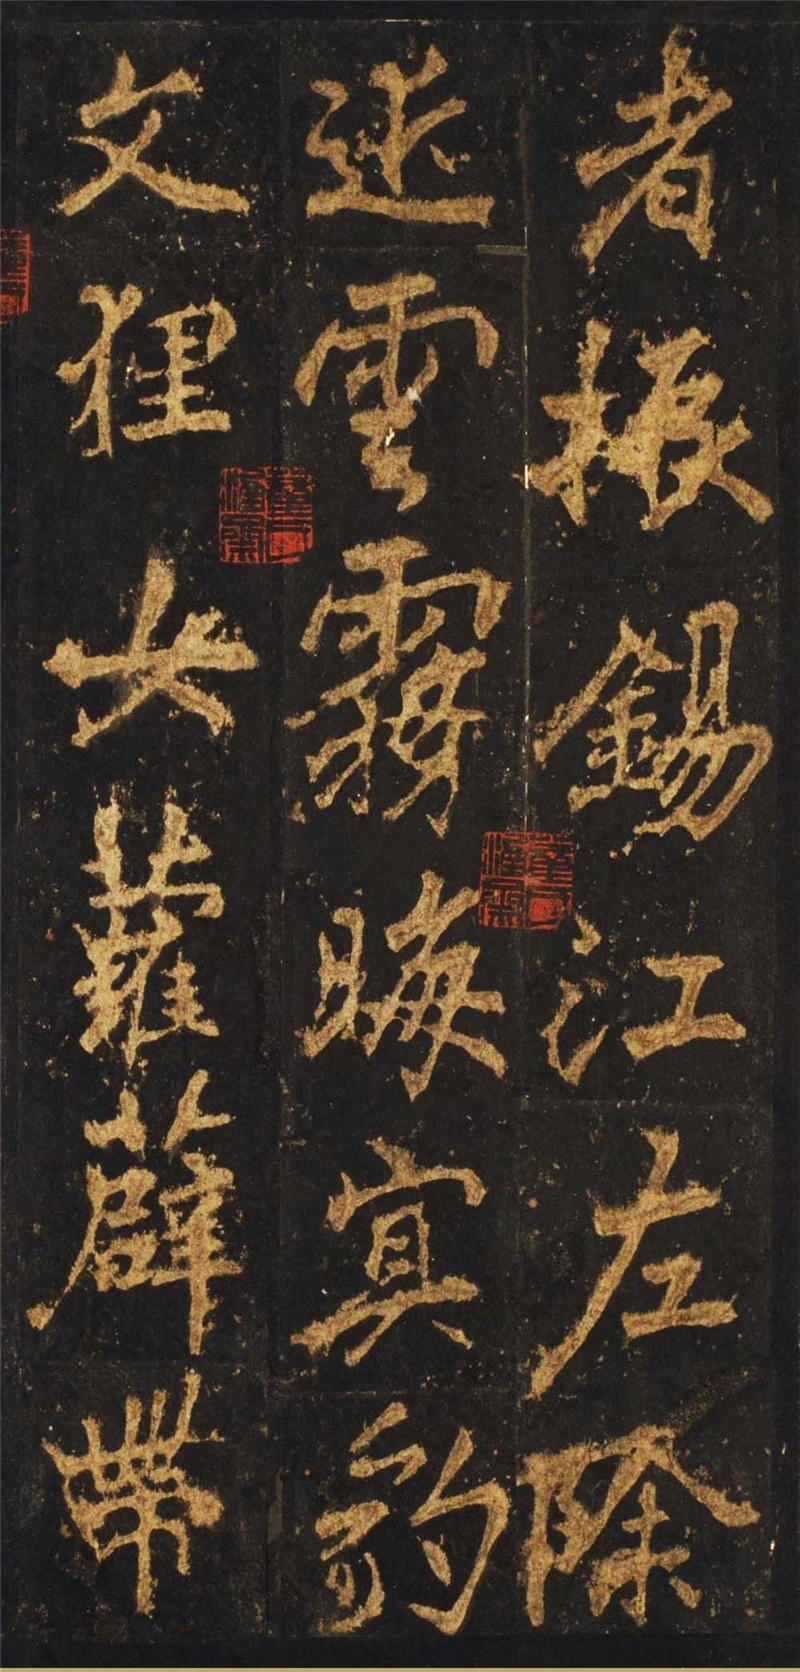 者振錫江左除
迹雲霧晦冥豹
文狸女蘿薜帶